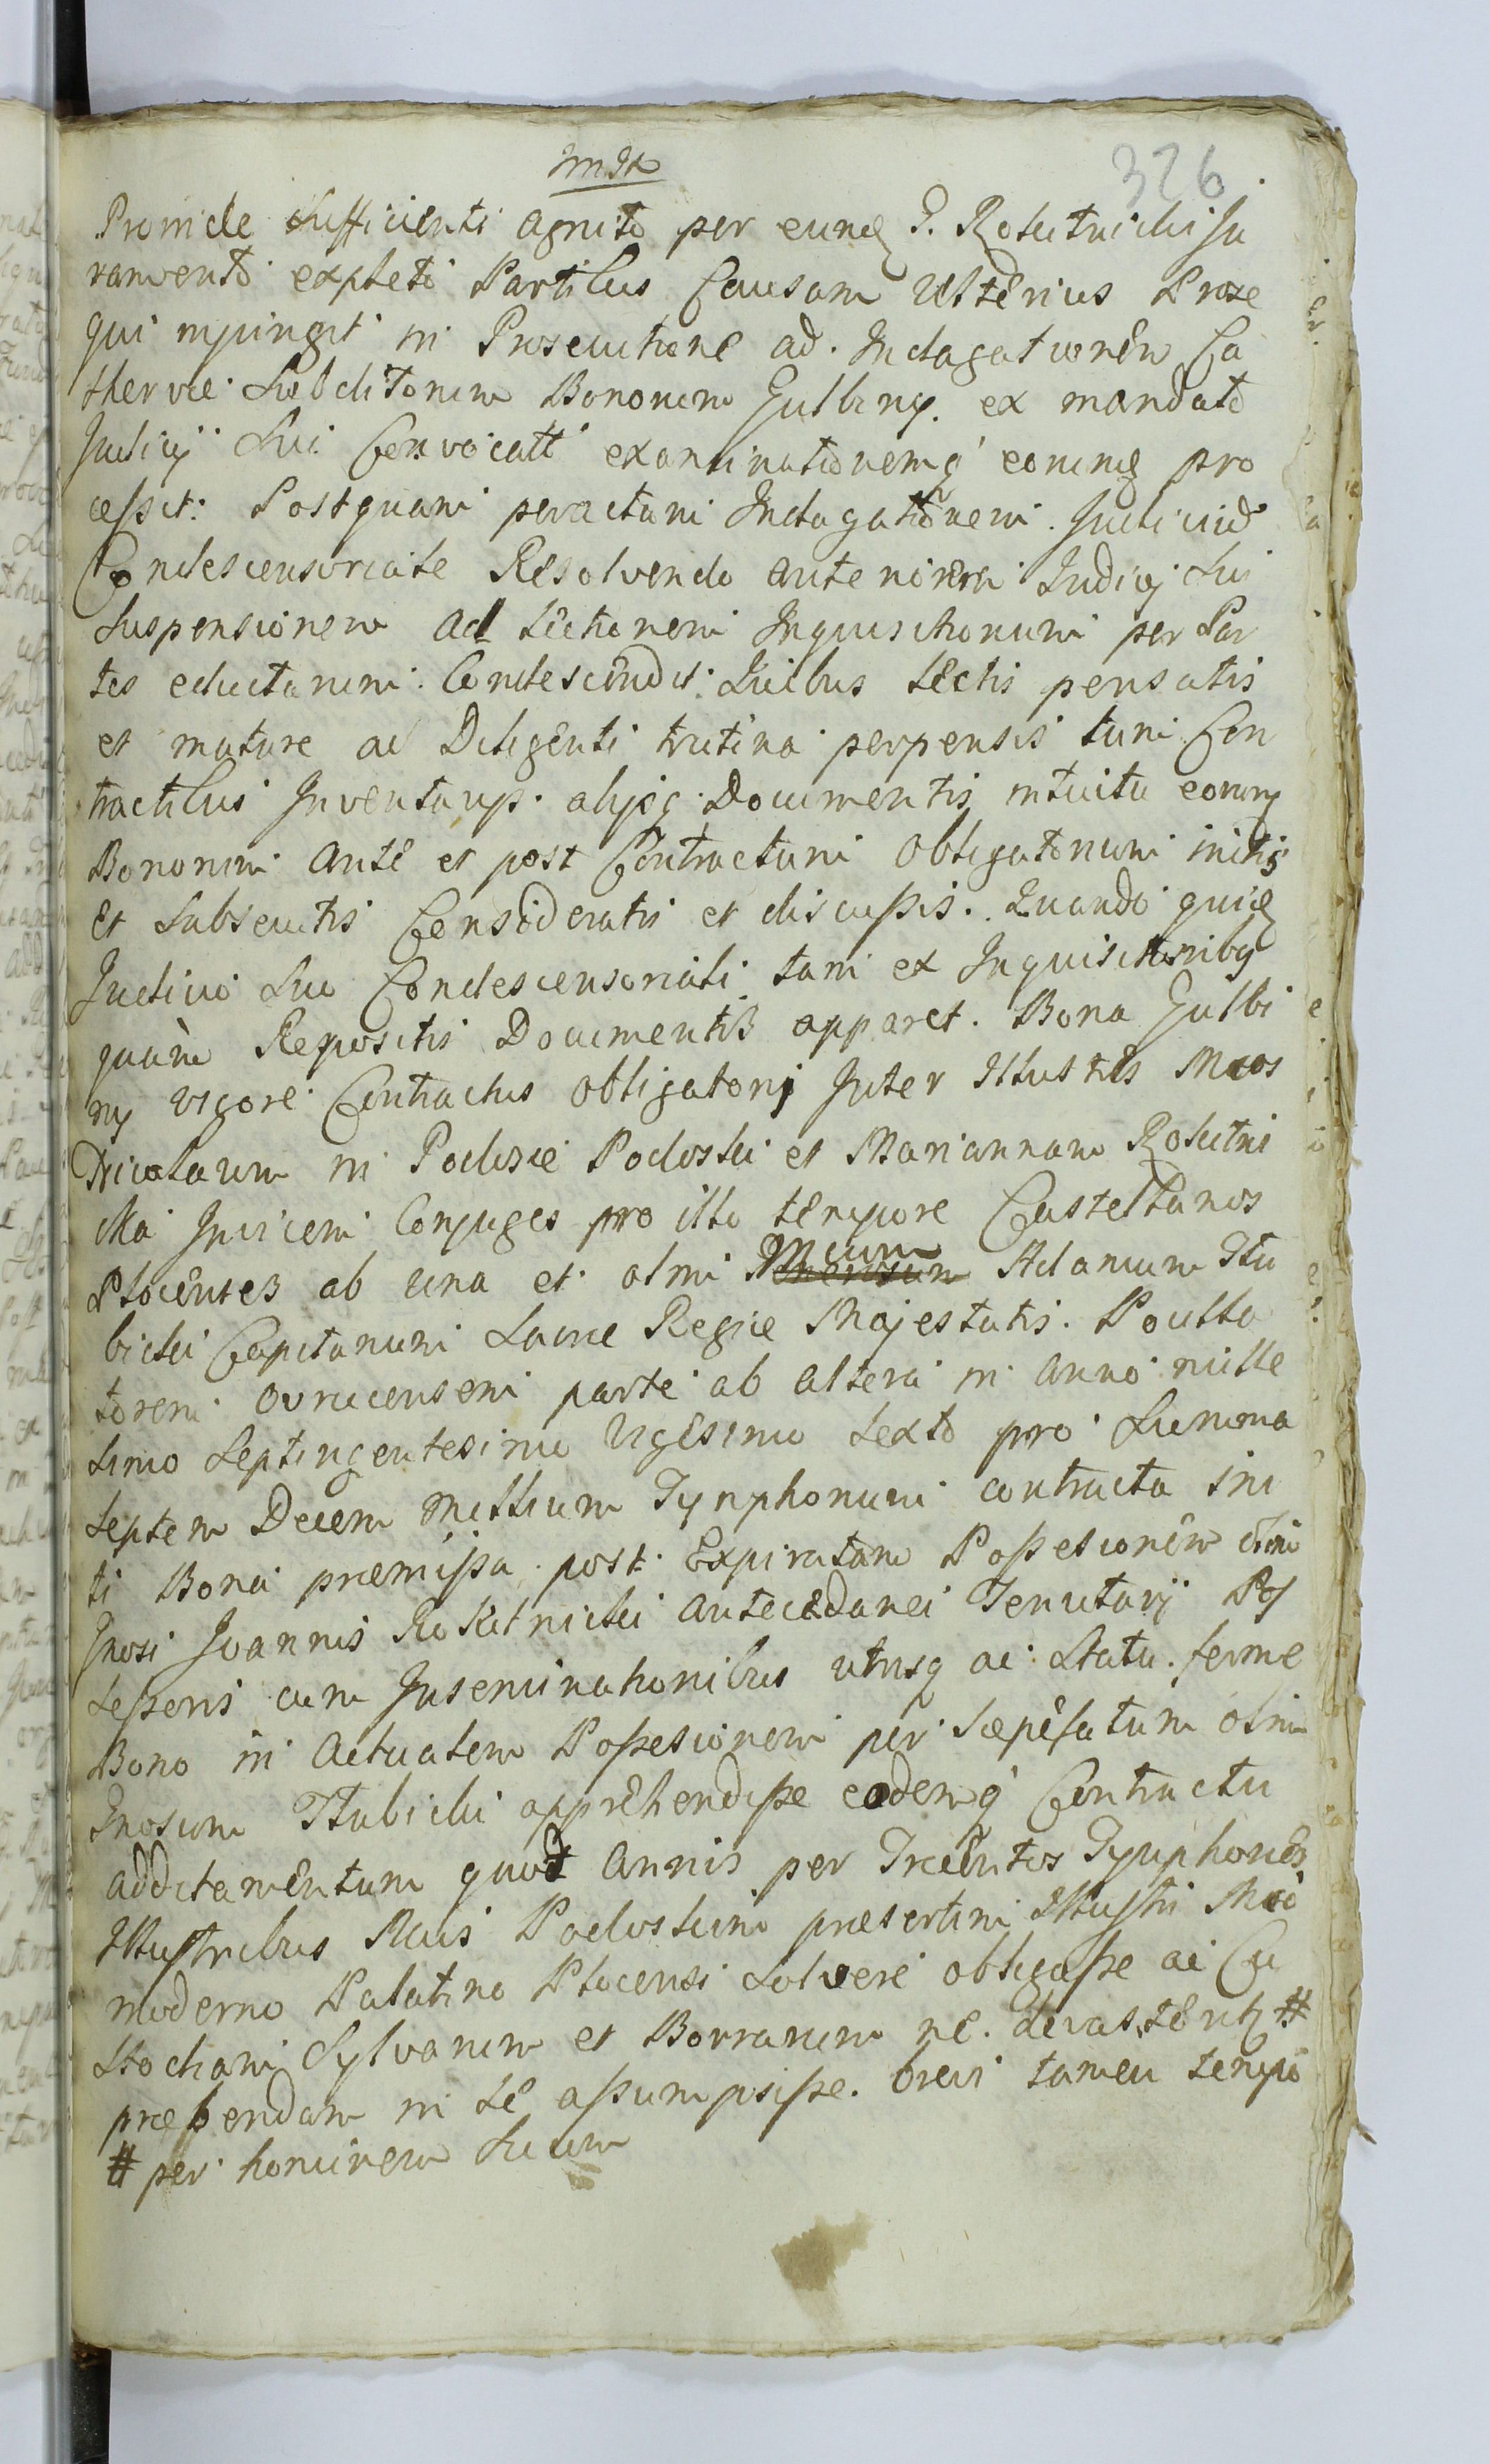 326
Proinde sufficienti agnito per eundq G. Rokitnicki Ju
ramento expleto Partibus Causam ulterius Prose
qui injungit in Prosecutione ad Indagationem Ca
thervae Subditorum Bonorum Gulbiny ex mandato
Judicij sui Convocati examinationemq eorundq pro
cessit. Postquam peractam Indagationem Judicium
Condescensoriale Resolvendo anteriorem Judicij sui
suspensionem ad lectionem Inquisitionum per Par
tes eductarum Condescendit. Quibus lectis pensatis
et mature ac Diligenti trutina perpensis tum Con
tractibus Inventarijs alijsq Documentis intuitu eorundq
Bonorum ante et post Contractum Obligatorium initis
Et Subsecutis Consideratis et discussis. Quando quidq
Judicio suo Condescensoriali tam ex Inquisitionibq
quam Repositis Documentis apparet. Bona Gulbi
ny vigore Contractus obligatorij Inter Illustres Mcos
Nicolaum in Podosie Podoski et Mariannam Rokitni
cka Invicem Conjuges pro illo tempore Castellanos
Plocenses ab una et olim Mcum Adamum Stu
bicki Capitaneum Sacrae Regiae Majestatis Pocilla
torem Ovrucensem parte ab altera in anno mille
simo Septingentesimo Vigesimo Sexto pro Summa
Septem Decem Millium Tynphonum contracta ini
ti Bona praemissa post Expiratam Possesionem olim
Gnosi Joannis Rokitnicki antecedanei Tenutarij Pos
sessoris cum Inseminationibus utrisq ac Statu ferme
Bono in Actualem Possesionem per saepefatum olim
Gnosum Stubicki apprehendisse eodemq Contractu
additamentum quot Annis per Trecentos Tynphones
Illustribus Mcis Podoskim praesertim Illustri Mco
moderno Palatino Plocensi Solvere obligasse ac Cu
stodiam Sylvarum et Borrarum ne devastentq #
praebendam in se assumpsisse. brevi tamen tempo
# per hominem suum